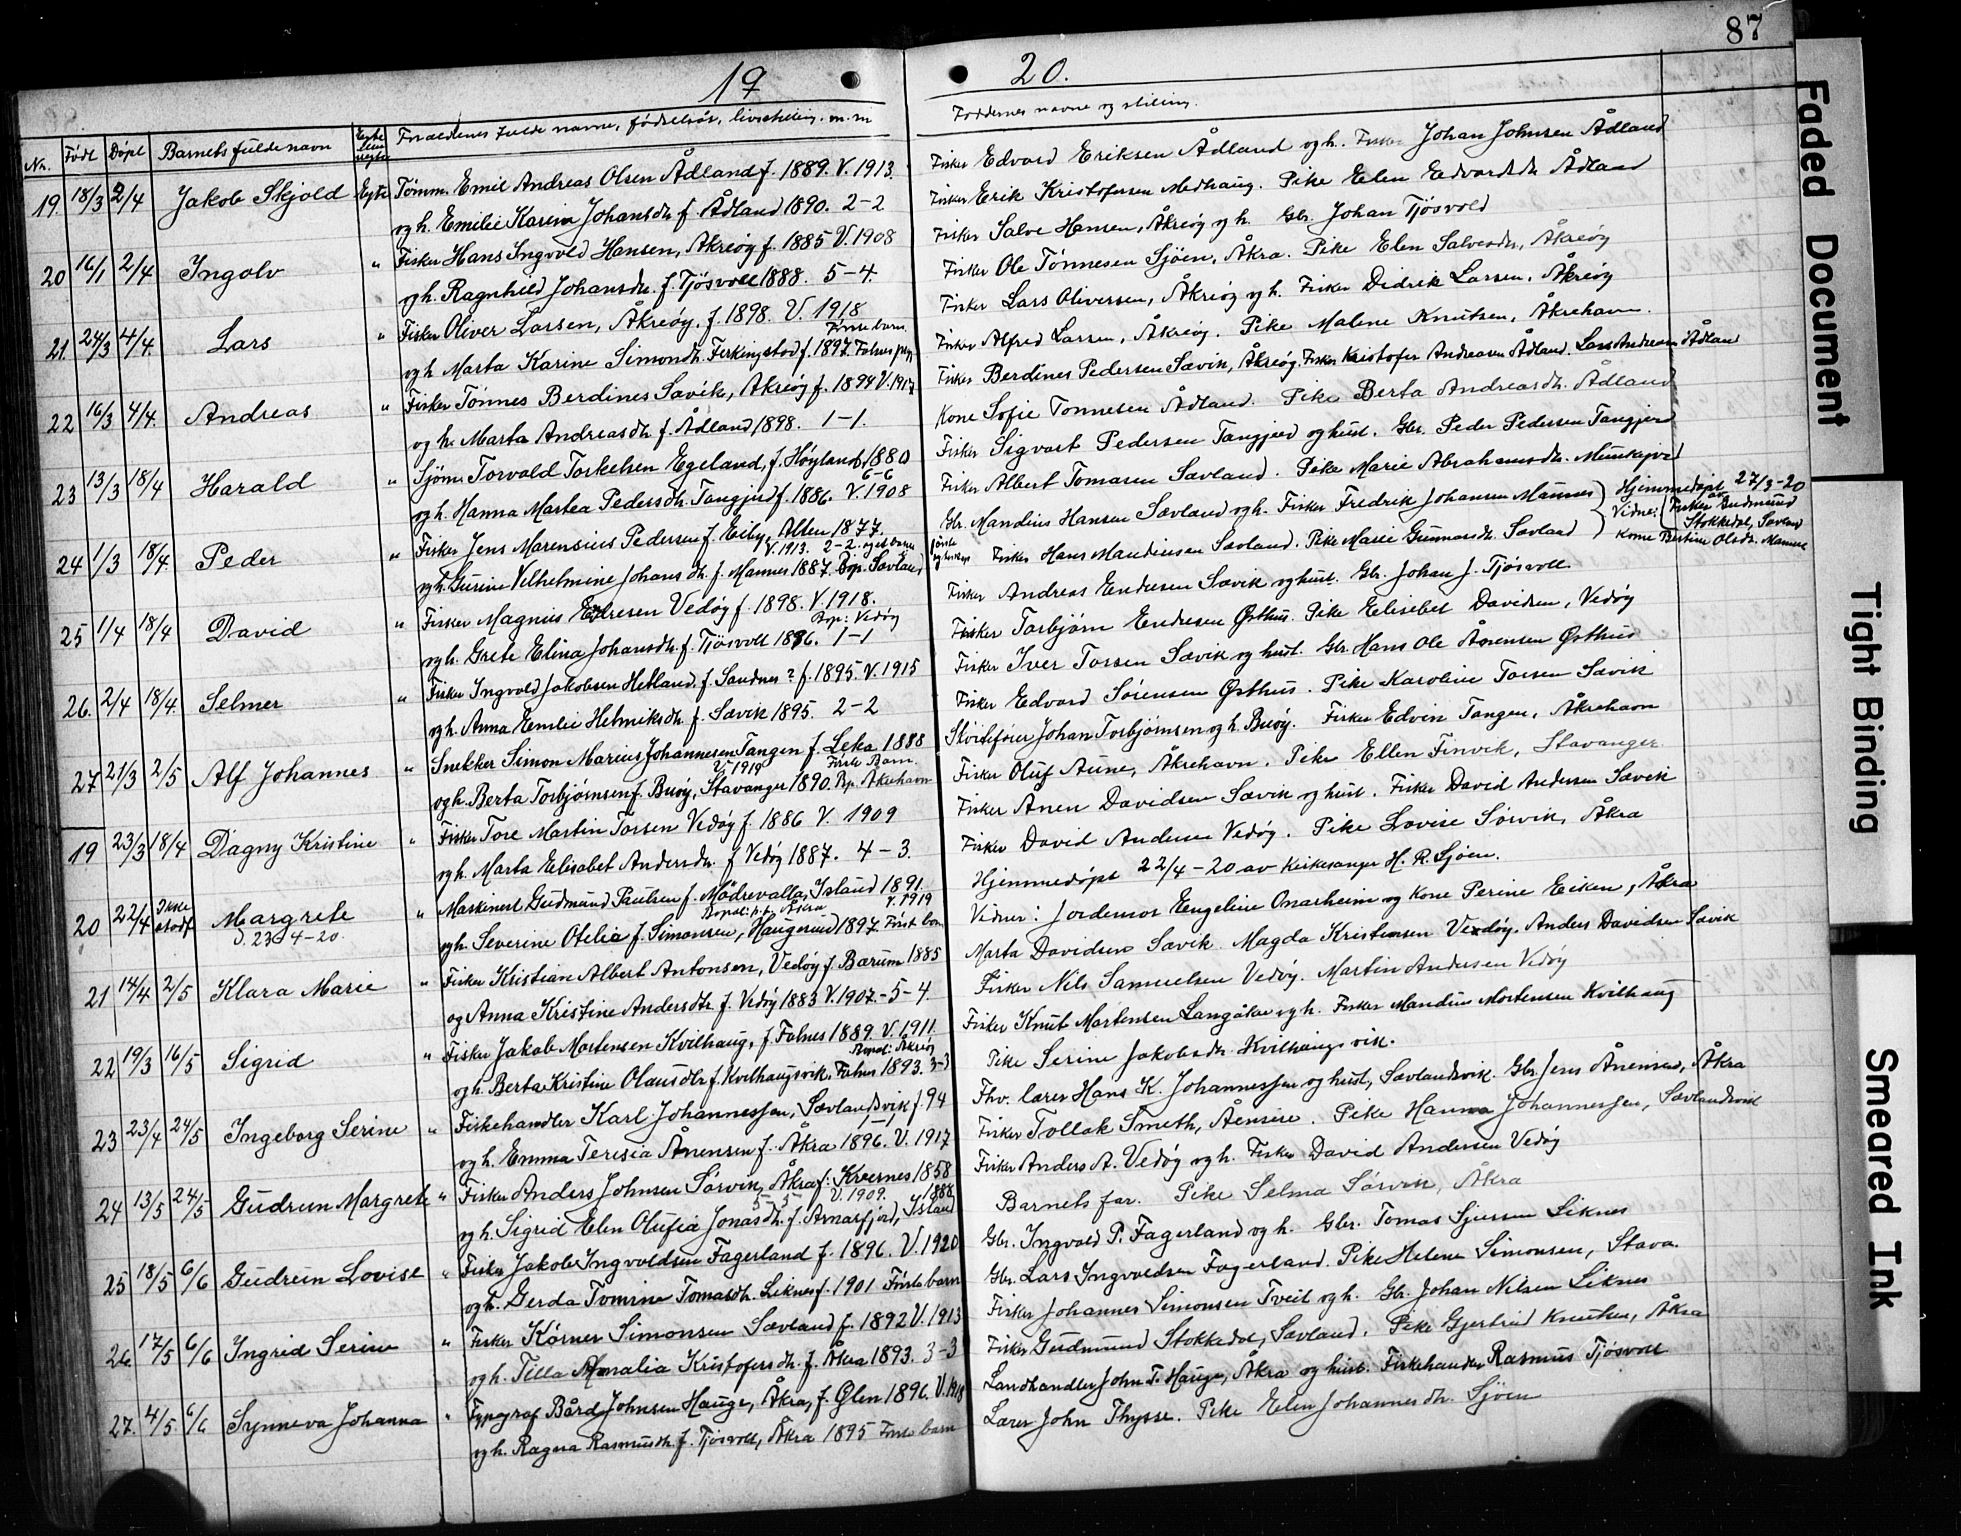 87
19 20.
Nr. Født Døpt Barnets fulde navn Egte Forældrenes fulde navne, fødselsår, livsstilling m.m Faddernes navne og stilling.
19. 18/3 2/4 Jakob Skjold Egte Tømm. Emil Andreas Olsen Ådland f. 1889. V. 1913. Fisker Edvard Eriksen Ådland og h. Fisker Johan Johnsen Ådland
og h. Emilie Karine Johansdtr. f. Ådland 1890. 2-2 Fisker Erik Kristofersen Medhaug. Pike Elen Edvardsdtr. Ådland
20 16/1 2/4 Ingolv " Fisker Hans Ingvold Hansen, Åkreøy f. 1885 V. 1908 Fisker Salve Hansen, Åkreøy og h. Gbr. Johan Tjøsvold
og h. Ragnhild Johansdtr. f. Tjøsvoll 1888. 5-4. Fisker Ole Tønnesen Sjöen, Åkra. Pike Elen Salvesdtr, Åkreöy
21. 24/3 4/4. Lars " Fisker Oliver Larsen, Åkreøy, f. 1898. V. 1918 Fisker Lars Oliversen, Åkreøy og h. Fisker Didrik Larsen, Åkreöy
og h. Marta Karine Simondtr. Ferkingstad f. 1897. Første barn. Falnes Fisker Alfred Larsen, Åkreöy. Pike Malene Knutsen, Åkrehavn.
22 16/3 4/4. Andreas " Fisker Tönnes Berdines Sævik, Åkreöy f. 1894 V. 1917 Fisker Berdines Pedersen Sævik, Åkreöy. Fisker Kristofer Andreasen Ådland. Lars Andreasen Ådland
og h. Marta Andreasdtr. f. Ådland 1898. 1-1. Kone Sofie Tønnesen Ådland. Pike Berta Andreasdtr. Ådland
23 13/3 18/4 Harald " Sjøm. Torvald Torkelsen Egeland, f. Høyland 1880 Fisker Sigvart Pedersen Tangjerd og hust. Gbr. Peder Pedersen Tangjerd
og h. Hanna Martea Pedersdtr. Tangjerd f. 1886. V. 1908 6-6 Fisker Albert Tomasen Sævland. Pike Marie Abrahamsdtr. Munkejord
24 1/3 18/4. Peder " Fisker Jens Marensius Pedersen f. Eiby, Alten 1877. Gbr. Mandius Hansen Sævland og h. Fisker Fredrik Johansen Mannes Hjemmedøpt 27/3-20
V. 1913. 2-2. Vidne: Fisker Gudmund Stokkedal, Sævland
og h. Gurine Vilhelmine Johansdtr. f. Mannes 1887. Bop. Sævland Fisker Hans Mandiusen Sævland. Pike Marie Gunnarsdtr. Sævland Kone Bertine Olsdtr. Mannes
25 1/4 18/4 David " Fisker Magnus Endresen Vedøy f. 1898. V. 1918. Fisker Andreas Endresen Sævik og hust. Gbr. Johan J. Tjøsvoll
og h. Grete Elina Johansdtr. f. Tjösvoll 1896. 1-1 Bop: Vedöy Fisker Torbjørn Endresen Østhus. Pike Elisebet Davidsen, Vedöy
26. 2/4 18/4. Selmer " Fisker Ingvold Jakobsen Hetland f. Sandnes? f. 1895. V. 1915 Fisker Iver Torsen Sævik og hust. Gbr. Hans Ole Sørensen Østhus
og h. Anna Emilie Helmiksdtr. f. Sævik 1895. 2-2 Fisker Edvard Sörensen Østhus. Pike Karoline Torsen Sævik
27 21/3 2/5 Alf Johannes " Snekker Simon Marius Johannesen Tangen f. Leka 1888 Skoitefører Johan Torbjørnsen og h. Buöy. Fisker Edvin Tangen, Åkrehavn
V. 1919 Første Barn.
og h. Berta Torbjørnsen f. Buöy, Stavanger 1890. Bp. Åkrehavn Fisker Oluf Aune, Åkrehavn. Pike Ellen Finvik, Stavanger
19 23/3 18/4 Dagny Kristine " Fisker Tore Martin Torsen Vedöy f. 1886 V. 1909 Fisker Anen Davidsen Sævik og hust. Fisker David Andersen Sævik
og h. Marta Elisabet Andersdtr. f. Vedöy 1887. 4-3. Fisker David Andersen Vedöy. Pike Lovise Sörvik, Åkra
20 22/4 Ikke Margrete " Maskinest Gudmund Paulsen f. Mödrevalla, Island 1891. V. 1919 Hjemmedøpt 22/4-20 av Kirkesanger H. R. Sjøen.
D. 23-4-20. og h. Severine Otelia f. Simonsen, Haugesund 1897. Først barn Bopæl: p.t. Åkra Vidner: Jordemor Engeline Onarheim og Kone Perine Eiken, Åkra
21 14/4 2/5 Klara Marie " Fisker Kristian Albert Antonsen, Vedöy f. Bærum 1885 Marta Davidsen Sævik. Magda Kristensen Vedöy. Anders Davidsen Sævik
og Anna Kristine Andersdtr. f. Vedöy 1883 V. 1907.-5-4. Fisker Nils Samuelsen Vedöy. Martin Andersen Vedöy
22 19/3 16/5 Sigrid " Fisker Jakob Mortensen Kvilhaug, f. Falnes 1889. V. 1911. Fisker Knut Mortensen Langåker og h. Fisker Mandius Mortensen Kvilhaug
og h. Berta Kristine Olausdtr. f. Kvilhaugsvik, Falnes 1893. 3-3 Bopæl: Åkreöy Pike Serine Jakobsdtr. Kvilhaugsvik.
23 23/4 24/5 Ingeborg Serine " Fiskehandler Karl Johannessen, Sævlandsvik f. 94 Fhv. lærer Hans K. Johannessen og hust, Sævlandsvik. Gbr. Jens Ånensen, Åkra
og h. Emma Teresia Ånensen f. Åkra 1896. V. 1917 1-1 Fisker Tollak Smeth, Åensire. Pike Hanna Johannessen, Sævlandsvik
24 13/5 24/5 Gudrun Margrete " Fisker Anders Johnsen Sörvik, Åkra f: Kvernes 1858 Fisker Anders A. Vedöy og h. Fisker David Andersen Vedöy
5-5 V. 1909. 1888
og h. Sigrid Elen Olufia Jonasdtr. f. Arnarfjord, Island Barnets far. Pike Selma Sörvik, Åkra
25 18/5 6/6 Gudrun Lovise " Fisker Jakob Ingvoldsen Fagerland f. 1896. V. 1920 Gbr. Ingvald P. Fagerland og h. Gbr. Tomas Sjursen Liknes
og h. Gerda Tomine Tomasdtr. Liknes f. 1901 Første barn Gbr. Lars Ingvoldsen Fagerland. Pike Helene Simonsen, Stava.
26. 17/5 6/6 Ingrid Serine " Fisker Körner Simonsen Sævland f. 1892 V. 1913 Fisker Johannes Simonsen Tveit og h. Gbr. Johan Nilsen Liknes
og h. Tilla Amalia Kristofersdtr. f. Åkra 1893. 3-3 Fisker Gudmund Stokkedal, Sævland. Pike Gjertrud Knutsen, Åkra
27. 4/5. 6/6 Synneva Johanna " Typograf Bård Johnsen Hauge, Åkra, f. Ølen 1896. V. 1918 Landhandler John T. Hauge, Åkra og hust. Fiskehandler Rasmus Tjøsvoll
og h. Ragna Rasmusdtr. f. Tjøsvoll, Åkra 1895 Første barn Lærer John Thysse. Pike Elen Johannesdtr. Sjöen
Faded Document
Tight Binding
Smeared Ink